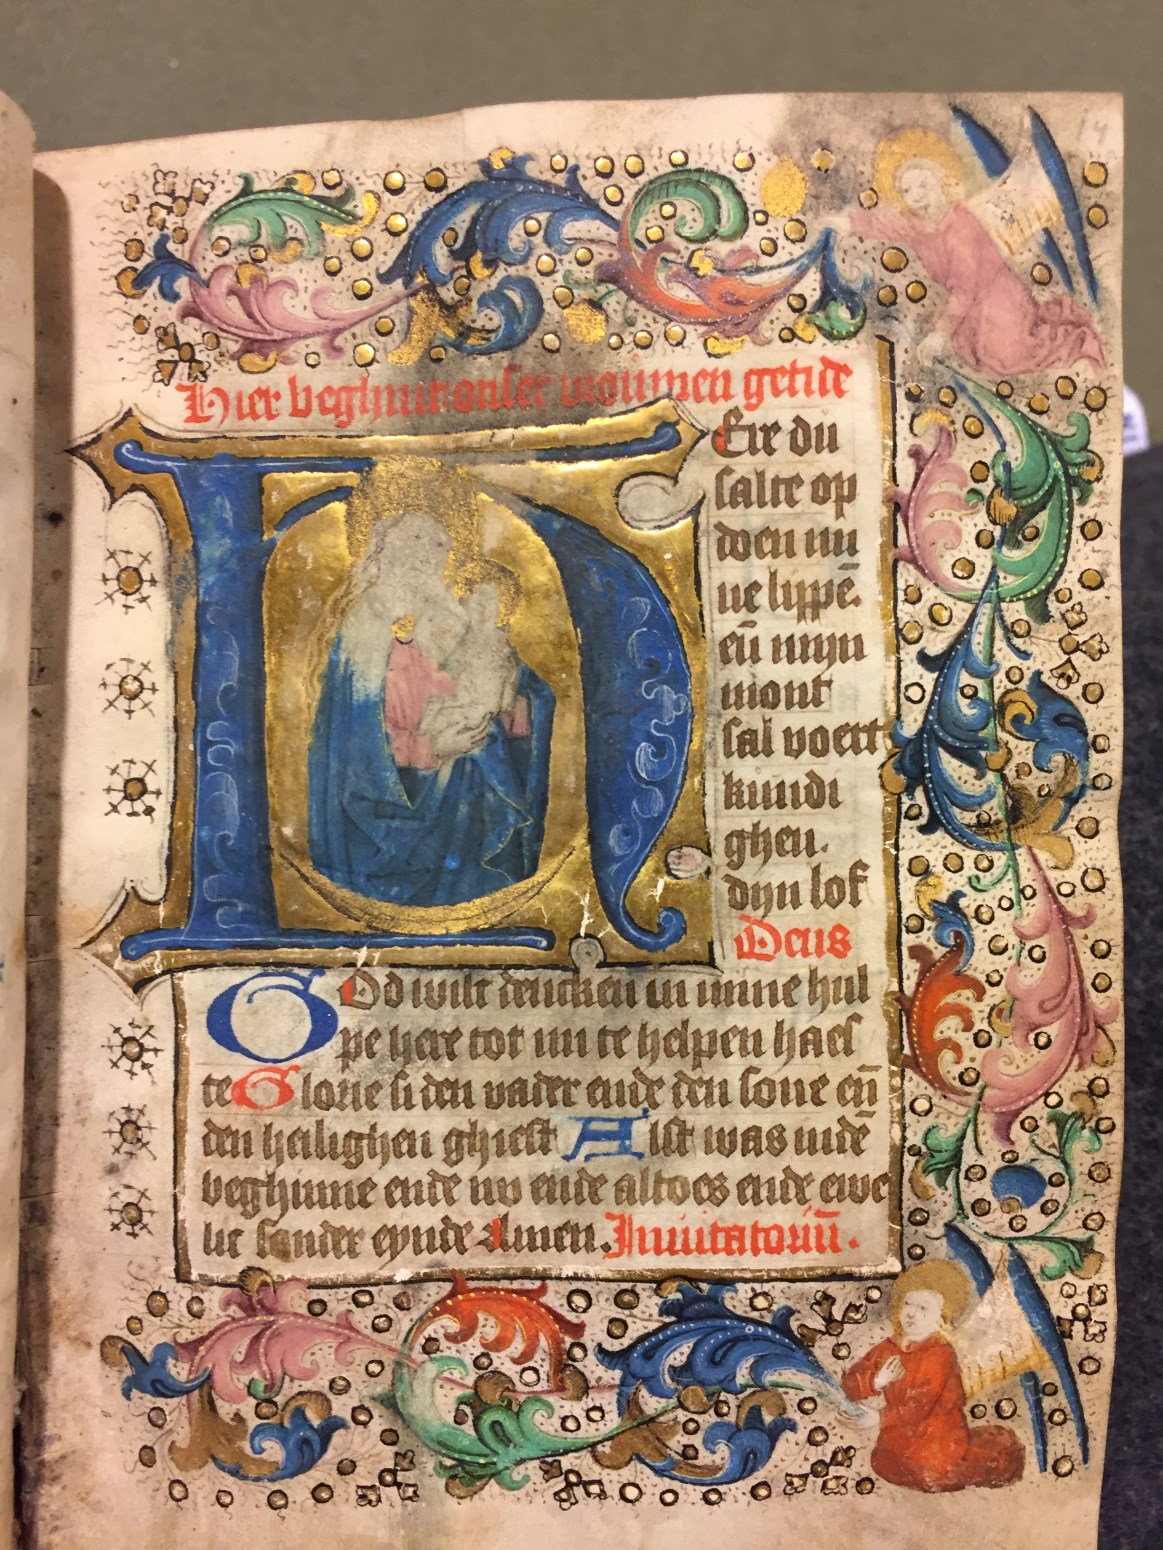 14
Hier beghint onser vrouwen getide
HEire du
salte op
doen mi
ne lippē.
eñ mijn
mont
sal voert
kundi
ghen.
dijn lof
Deus
GOd wilt dencken in mine hul
pe here tot mi te helpen haes
te Glorie si den vader ende den sone eñ
den heilighen ghiest Alst was indē
beghinne ende nv ende altoes ende ewe
lic sonder eynde Amen. Inuitatoriū.